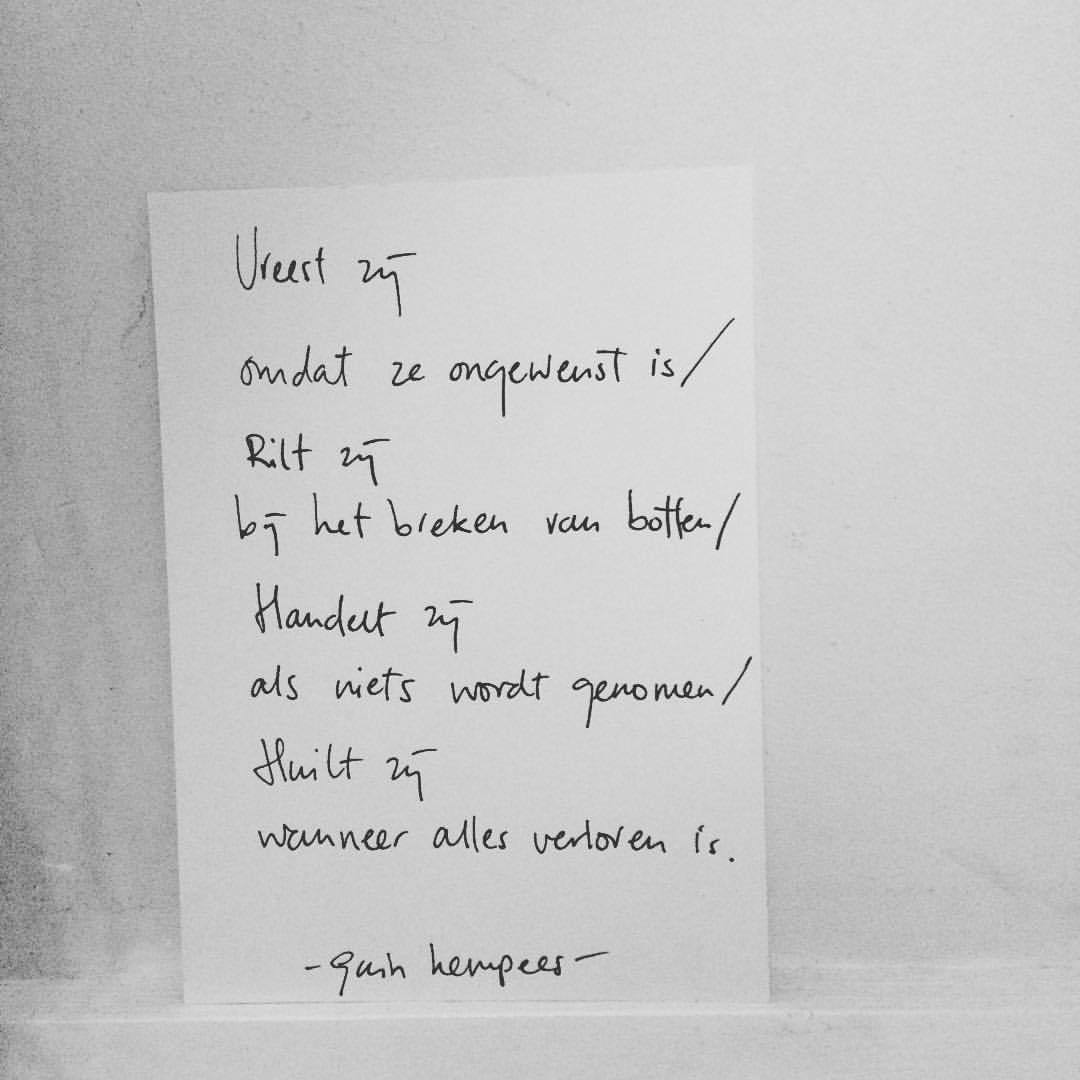 Vreest zij
omdat ze ongewenst is/
Rilt zij
bij het breken van botten/
Handelt zij
als niets wordt genomen/
Huilt zij
wanneer alles verloren is.
hempees -